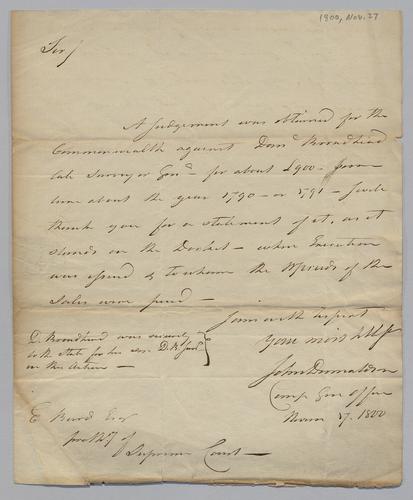 1800, Nov. 27
Sir/
A Judgement was obtained for the
Commonwealth against Danl Broadhead
late Surveyor Genl - for about £900 -
time about the year 1790 - or 1791 - I will
thank you for a statement of it, as it
stands on the Docket - when Execution
was issued & to whom the Proceeds of the
Sales were paid -
I am with respect
your most hble St
John Donnaldson
Comp Gen Office
Novem 27. 1800
D. Broadhead was security
to the State for his son D. B. Junr
in this Action -
E Burd Esqr
prothy of
Supreme Court -